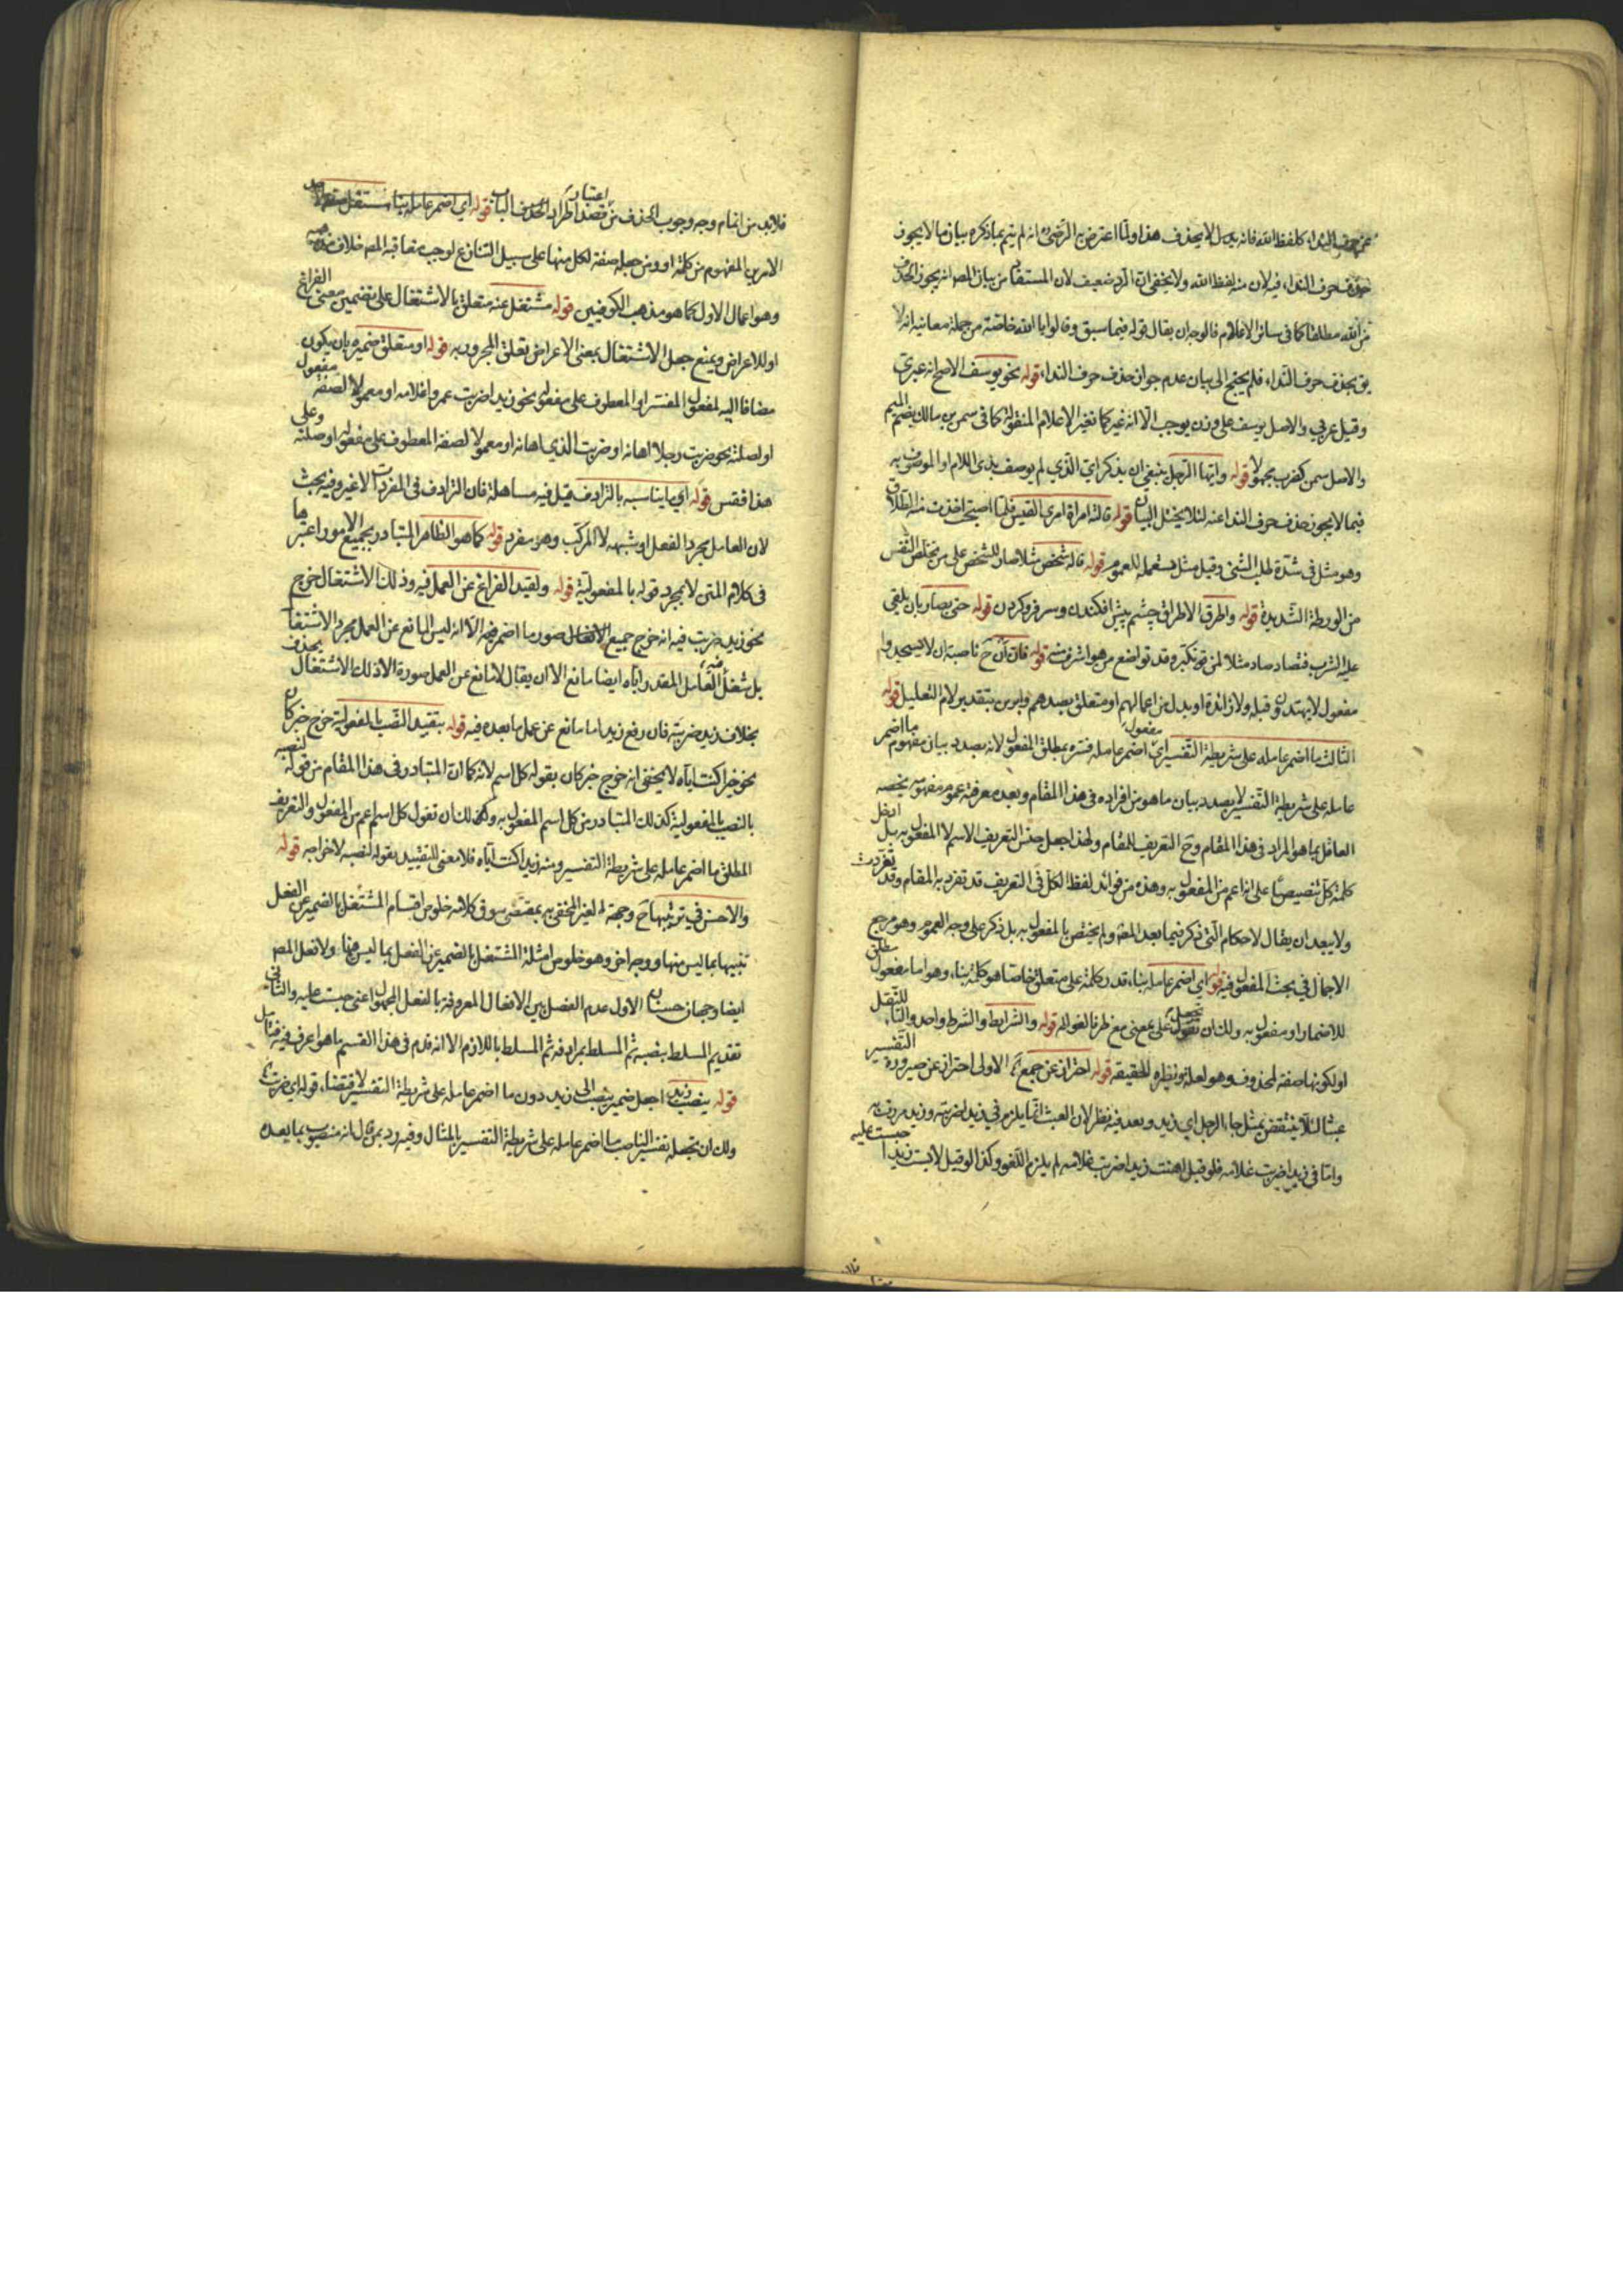 عن حرف النداء كلفظ الله فانه بدل لا يحذف هذا ولما اعترض به الرضي انه لم يتم بما ذكره بيان ما لا يجوز
حذف حرف النداء فيه لان منه لفظ الله ولا يخفى ان الرد ضعيف لان المستفاد من بيان المص انه يجوز الحذف
من الله مطلقا كما في سائر الاعلام فالوجه ان يقال قوله فيما سبق وقالوا يا الله خاصة من جملة معانيه انه لا
يحذف حرف النداء فلم يحتج الى بيان عدم جواز حذف حرف النداء قوله نحو يوسف الاصح انه عبري
وقيل عربي والاصل يوسف على وزن يوجب الا انه غير كما تغير الاعلام المنقولة كما في سمس بن مالك بضم الميم
والاصل سمس كضرب مجهولا قوله وايها الرجل ينبغي ان يذكر اي الذي لم يوصف بذي اللام او الموصوف به
فيما لا يجوز حذف حرف النداء عنه لئلا يختل البيان قوله قالته امراة امرئ القيس فلما اصبح اخذت منه الطلاق
وهو مثل في شدة طلب الشئ وقيل مثل مستعمل للعموم قوله قاله شخص مثلا صار للشخص على من يخلص النفس
من الورطة الشديدة قوله واطرق الاطراق چشم پيش افكندن وسر فرو كردن قوله حتى يصاد بان يلقى
عليه الثوب فتصاد صار مثلا لمن تكبر وقد تواضع من هو اشرف منه قوله فان ان ح ناصبة ان لا يسجدوا
مفعول لا يهتدون قبله ولا زائدة او بدل من اعمالهم او متعلق بصدهم او بزين بتقدير لام التعليل قوله
الثالث ما اضمر عامله على شريطة التفسير اي مفعول اضمر عامله فسره بمطلق المفعول لانه بصدد بيان مفهوم ما اضمر
عامله على شريطة التفسير لا بصدد بيان ما هو من افراده في هذا المقام وبعد معرفة عموم مفهومه يخصه
العاقل بما هو المراد في هذا المقام وح التعريف للمقام ولهذا جعل جنس التعريف الاسم لا المفعول به بل ادخل
كلمة كل تنصيصا على انه اعم من المفعول به وهذه من فوائد لفظ الكل في التعريف قد تفرد به المقام وقد تفردت
ولا يبعد ان يقال لاحكام التي ذكر فيما بعد المص ولم يختص بالمفعول به بل ذكر على وجه العموم وهو مرجع
الاجمال في بحث المفعول فيه قوله اي اضمر عامله بناء قدر كلمة على متعلق خاصا هو كلمة بناء وهو اما مفعول مطلق
للاضمار او مفعول به ولك ان تجعل على بمعنى مع قوله والشرائط والشرط واحد والتاء للنقل
او لكونها صفة لمحذوف وهو لعلة ونظيره للحقيقة قوله احترازا عن جمع الاولى احتراز عن صيرورة التفسير
عبثا لئلا ينتقض بمثل جاء الرجل اي زيد وبعد فيه نظر لان العبث انما يلزم في زيدا ضربته وزيد مررت به
واما في زيدا ضربت غلامه فلو قيل اهنت زيدا ضربت غلامه لم يلزم اللغو وكذا لو قيل لابست زيدا حبست عليه
فلا بد من اتمام وجه وجوب الحذف من قصد اطراد الحذف الباب اعتبار قوله اي اضمر عامله بناء
الامرين المفهوم من كلمة او ومن جعله صفة لكل منهما على سبيل التنازع لوجب معاقبة المص خلاف مذهبه
وهو اعمال الاول كما هو مذهب الكوفيين قوله مشتغل عنه متعلق بالاشتغال على تضمين معنى الفراغ
او للاعراض ويمنع جعل الاشتغال بمعنى الاعراض تعلق المجرور به قوله او متعلق ضميره بان يكون
مضافا اليه لمفعول المفسر او المعطوف على مفعوله نحو زيدا ضربت عمرو او غلامه او معمولا لصفة مفعول
او لصلته نحو ضربت رجلا اهانه او ضربت الذي اهانه او معمولا لصفة المعطوف على مفعوله او صلته وعلى
هذا فقس قوله اي ما يناسبه بالترادف قيل فيه مساهلة فان الترادف في المفردات لا غير وفيه بحث
لان العامل مجرد الفعل او شبهه لا المركب وهو مفرد قوله كما هو الظاهر المتبادر بجميع الامور اعتبرها
في كلام المتن لا بمجرد قوله بالمفعولية قوله وبقيد الفراغ عن العمل فيه وذلك الاشتغال خرج
نحو زيد ضربت فيه انه خرج جميع صور ما اضمر فيه الا انه ليس المانع عن العمل مجرد الاشتغال
بل شغل العامل المقدر اياه ايضا مانع الا ان يقال لا مانع عن العمل صورة الا ذلك الاشتغال بحذف
بخلاف زيد ضربته فان رفع زيد اما مانع عن عمل ما بعده فيه قوله بتقييد النصب بالمفعولية خرج خبر كان
نحو خيرا كنت اياه لا يخفى انه خرج خبر كان بقوله كل اسم لانه كما ان المتبادر في هذا المقام من قوله لنصبه
بالنصب بالمفعولية كذلك المتبادر من كل اسم المفعول به ولك ان تقول كل اسم اعم من المفعول والتعريف
المطلق ما اضمر عامله على شريطة التفسير ومنه زيدا كنت اياه فلا معنى للتقييد بقوله لنصبه لاخراجه قوله
والاحسن في ترتيبها ح وجهه لغير المخفي به بمقتضى سوق كلامه خلوص اقسام المشتغل بالضمير عن الفعل
تنبيها بما ليس منها ووجه اخر وهو خلوص امثلة المشتغل بالضمير عن الفصل بما ليس منها ولا تفعل المص
ايضا وجهان حسنان الاول عدم الفصل بين الافعال المعروفة بالفعل المجهول اعني حبست عليه والثاني
تقديم المسلط بنفسه ثم المسلط بمرادفه ثم المسلط باللازم الا انه قدم في هذا القسم ما هو اعرف فيه فتامل
قوله ينصب زيد اجعل ضمير ينصب الى زيد دون ما اضمر عامله على شريطة التفسير لاقتضاء قوله اي ضربت
ولك ان تجعله تفسير الناصب ما اضمر عامله على شريطة التفسير بالمثال وفيه رد بمن قال انه منصوب بما بعده